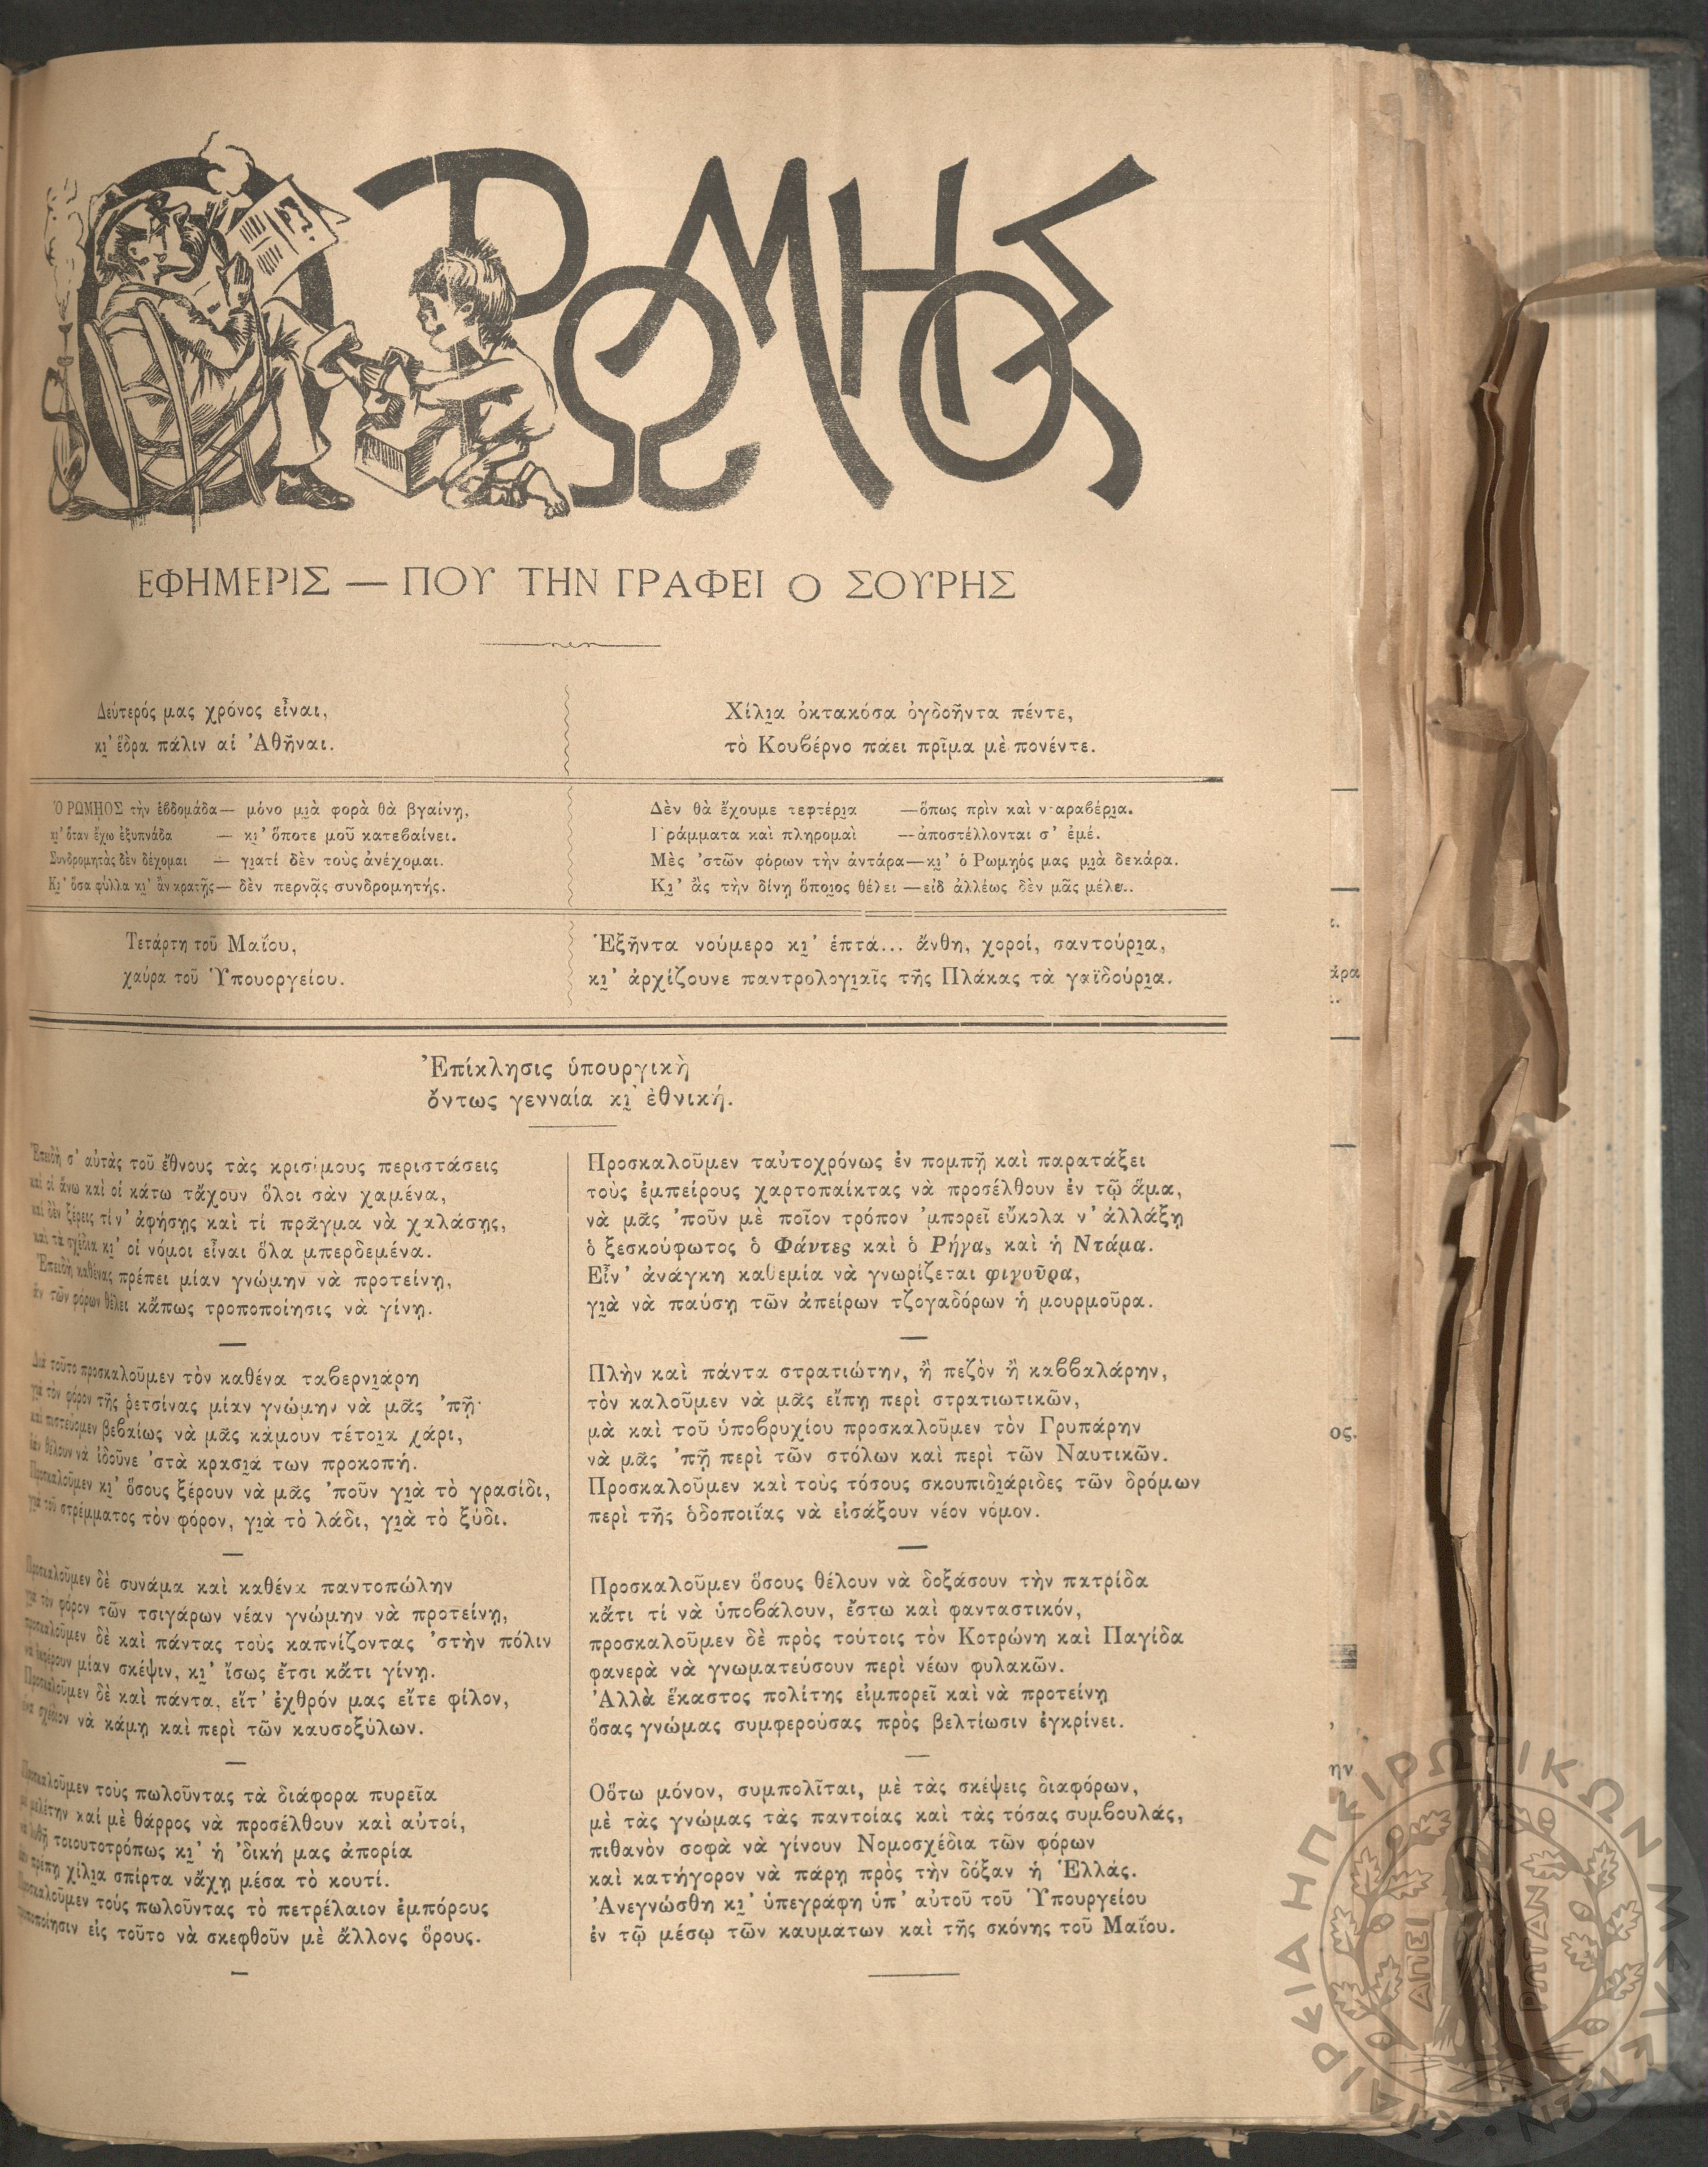 Ο ΡΩΜΗΟΣ
ΕΦΗΜΕΡΙΣ — ΠΟΥ ΤΗΝ ΓΡΑΦΕΙ Ο ΣΟΥΡΗΣ
Δεύτερός μας χρόνος εἶναι,
κι̯' ἕδρα πάλιν αἱ Ἀθῆναι.
Χίλι̯α ὀκτακόσα ὀγδοῆντα πέντε,
τὸ Κουβέρνο πάει πρῖμα μὲ πονέντε.
Ὁ ΡΩΜΗΟΣ τὴν ἑβδομάδα— μόνο μι̯ὰ φορὰ θὰ βγαίνῃ,
κι̯' ὅταν ἔχω ἐξυπνάδα — κι̯' ὅποτε μοῦ κατεβαίνει.
Συνδρομητὰς δὲν δέχομαι — γι̯ατί δὲν τοὺς ἀνέχομαι.
Κι̯' ὅσα φύλλα κι̯' ἂν κρατῇς— δὲν περνᾷς συνδρομητής.
Δὲν θὰ ἔχουμε τεφτέρι̯α —ὅπως πρὶν καὶ νταραβέρι̯α.
Γράμματα καὶ πληρομαὶ —ἀποστέλλονται σ' ἐμέ.
Μὲς 'στῶν φόρων τὴν ἀντάρα—κι̯' ὁ Ρωμηὸς μας μι̯ὰ δεκάρα.
Κι̯' ἂς τὴν δίνῃ ὅποι̯ος θέλει —εἰδ ἀλλέως δὲν μᾶς μέλει.
Τετάρτη τοῦ Μαΐου,
χαύρα τοῦ Ὑπουργείου.
Ἑξῆντα νούμερο κι̯' ἑπτά... ἄνθη, χοροί, σαντούρι̯α,
κι̯' ἀρχίζουνε παντρολογι̯αῖς τῆς Πλάκας τὰ γαϊδούρι̯α.
Ἐπίκλησις ὑπουργικὴ
ὄντως γενναία κι̯' ἐθνική.
Ἐπειδὴ σ' αὐτὰς τοῦ ἔθνους τὰς κρισίμους περιστάσεις
καὶ οἱ ἄνω καὶ οἱ κάτω τἄχουν ὅλοι σὰν χαμένα,
καὶ δὲν ξέρεις τί ν' ἀφήσῃς καὶ τί πρᾶγμα νὰ χαλάσῃς,
καὶ τὰ σχέδια κι̯' οἱ νόμοι εἶναι ὅλα μπερδεμένα.
Ἐπειδὴ καθένας πρέπει μίαν γνώμην νὰ προτείνῃ,
ἂν τῶν φόρων θέλει κἄπως τροποποίησις νὰ γίνῃ.
Διὰ τοῦτο προσκαλοῦμεν τὸν καθένα ταβερνι̯άρη
γιὰ τὸν φόρον τῆς ῥετσίνας μίαν γνώμην νὰ μᾶς 'πῇ·
καὶ πιστεύομεν βεβαίως νὰ μᾶς κάμουν τέτοι̯α χάρι,
ἐὰν θέλουν νὰ ἰδοῦνε 'στὰ κρασι̯ά των προκοπή.
Προσκαλοῦμεν κι̯' ὅσους ξέρουν νὰ μᾶς 'ποῦν γι̯ὰ τὸ γρασίδι,
γιὰ τοῦ στρέμματος τὸν φόρον, γι̯ὰ τὸ λάδι, γι̯ὰ τὸ ξύδι.
Προσκαλοῦμεν δὲ συνάμα καὶ καθένα παντοπώλην
γιὰ τὸν φόρον τῶν τσιγάρων νέαν γνώμην νὰ προτείνῃ,
προσκαλοῦμεν δὲ καὶ πάντας τοὺς καπνίζοντας 'στὴν πόλιν
νὰ ἐκφέρουν μίαν σκέψιν, κι̯' ἴσως ἔτσι κἄτι γίνῃ.
Προσκαλοῦμεν δὲ καὶ πάντα, εἴτ' ἐχθρόν μας εἴτε φίλον,
ἕνα σχέδιον νὰ κάμῃ καὶ περὶ τῶν καυσοξύλων.
Προσκαλοῦμεν τοὺς πωλοῦντας τὰ διάφορα πυρεῖα
μὲ μελέτην καί μὲ θάρρος νὰ προσέλθουν καὶ αὐτοί,
νὰ λυθῇ τοιουτοτρόπως κι̯' ἡ 'δική μας ἀπορία
ἐὰν πρέπῃ χίλι̯α σπίρτα νἄχῃ μέσα τὸ κουτί.
Προσκαλοῦμεν τοὺς πωλοῦντας τὸ πετρέλαιον ἐμπόρους
τροποποίησιν εἰς τοῦτο νὰ σκεφθοῦν μὲ ἄλλους ὅρους.
Προσκαλοῦμεν ταὐτοχρόνως ἐν πομπῇ καὶ παρατάξει
τοὺς ἐμπείρους χαρτοπαίκτας νὰ προσέλθουν ἐν τῷ ἅμα,
νὰ μᾶς 'ποῦν μὲ ποῖον τρόπον 'μπορεῖ εὔκολα ν' ἀλλάξῃ
ὁ ξεσκούφωτος ὁ Φάντες καὶ ὁ Ρήγας καὶ ἡ Ντάμα.
Εἶν' ἀνάγκη καθεμία νὰ γνωρίζεται φιγοῦρα,
γι̯ὰ νὰ παύσῃ τῶν ἀπείρων τζογαδόρων ἡ μουρμοῦρα.
Πλὴν καὶ πάντα στρατιώτην, ἢ πεζὸν ἢ καββαλάρην,
τὸν καλοῦμεν νὰ μᾶς εἴπῃ περὶ στρατιωτικῶν,
μὰ καὶ τοῦ ὑποβρυχίου προσκαλοῦμεν τὸν Γρυπάρην
νὰ μᾶς 'πῇ περὶ τῶν στόλων καὶ περὶ τῶν Ναυτικῶν.
Προσκαλοῦμεν καὶ τοὺς τόσους σκουπιδι̯άριδες τῶν δρόμων
περὶ τῆς ὁδοποιΐας νὰ εἰσάξουν νέον νόμον.
Προσκαλοῦμεν ὅσους θέλουν νὰ δοξάσουν τὴν πατρίδα
κἄτι τί νὰ ὑποβάλουν, ἔστω καὶ φανταστικόν,
προσκαλοῦμεν δὲ πρὸς τούτοις τὸν Κοτρώνη καὶ Παγίδα
φανερὰ νὰ γνωματεύσουν περὶ νέων φυλακῶν.
Ἀλλὰ ἕκαστος πολίτης εἰμπορεῖ καὶ νὰ προτείνῃ
ὅσας γνώμας συμφερούσας πρὸς βελτίωσιν ἐγκρίνει.
Οὕτω μόνον, συμπολῖται, μὲ τὰς σκέψεις διαφόρων,
μὲ τὰς γνώμας τὰς παντοίας καὶ τὰς τόσας συμβουλάς,
πιθανὸν σοφὰ νὰ γίνουν Νομοσχέδια τῶν φόρων
καὶ κατήγορον νὰ πάρῃ πρὸς τὴν δόξαν ἡ Ἑλλάς.
Ἀνεγνώσθη κι̯' ὑπεγράφη ὑπ' αὐτοῦ τοῦ Ὑπουργείου
ἐν τῷ μέσῳ τῶν καυμάτων καὶ τῆς σκόνης τοῦ Μαΐου.